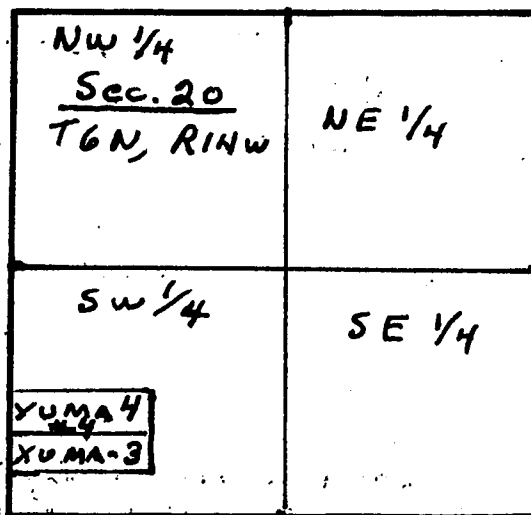 NW 1/4
Sec. 20
T6N, R14W
NE 1/4
SW 1/4
SE 1/4
YUMA 4
#4
YUMA-3